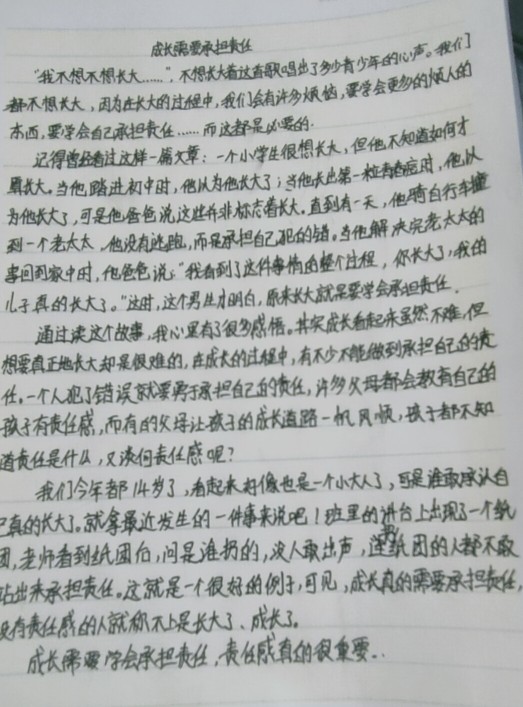 成长需要承担责任
“我不想不想长大……”，不想长大着这首歌唱出了多少青少年的心声。我们
都不想长大，因为在长大的过程中，我们会有许多烦恼，要学会更多的烦人的
东西，要学会自己承担责任……而这都是必要的。
记得曾经看过这样一篇文章：一个小学生很想长大，但他不知道如何才
算长大。当他踏进初中时，他以为他长大了；当他长出第一粒青春痘时，他以
为他长大了，可是他爸爸说，这些并非标志着长大。直到有一天，他骑自行车撞
到一个老太太，他没有逃跑，而是承担自己犯的错。当他解决完老太太的
事回到家中时，他爸爸说：“我看到了这件事情的整个过程，你长大了，我的
儿子真的长大了。”这时，这个男生才明白，原来长大就是要学会承担责任。
通过读这个故事，我心里有了很多感悟。其实成长看起来虽然不难，但
想要真正地长大却是很难的，在成长的过程中，有不少不能做到承担自己的责
任。一个人犯了错误就要勇于承担自己的责任，许多父母都会教育自己的
孩子有责任感，而有的父母让孩子的成长道路一帆风顺，孩子都不知
道责任是什么，又谈何责任感呢？
我们今年都14岁了，看起来好像也是一个小大人了，可是谁敢承认自
己真的长大了。就拿最近发生的一件事来说吧！班里的讲台上出现了一个纸
团，老师看到纸团后，问是谁扔的，没人敢出声，连扔纸团的人都不敢
站出来承担责任。这就是一个很好的例子，可见，成长真的需要承担责任，
没有责任感的人就称不上是长大了、成长了。
成长需要学会承担责任，责任感真的很重要。